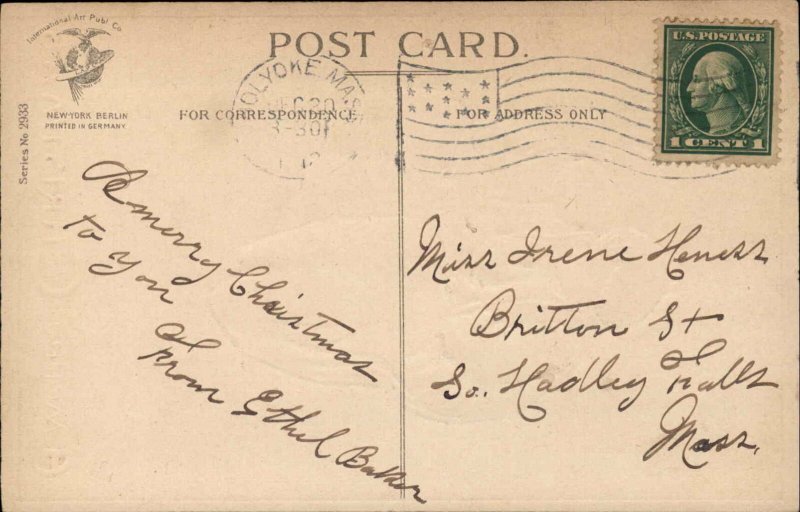 International Art Publ. Co.
NEW-YORK BERLIN
PRINTED IN GERMANY.
Series No 2933
POST CARD.
FOR CORRESPONDENCE
FOR ADDRESS ONLY
OLYOKE MA
DEC 20
3-30
U.S. POSTAGE
1 CENT 1
A merry Christmas
to you
From Ethel Baker
Miss Irene Heness
Britton St
So. Hadley Falls
Mass.